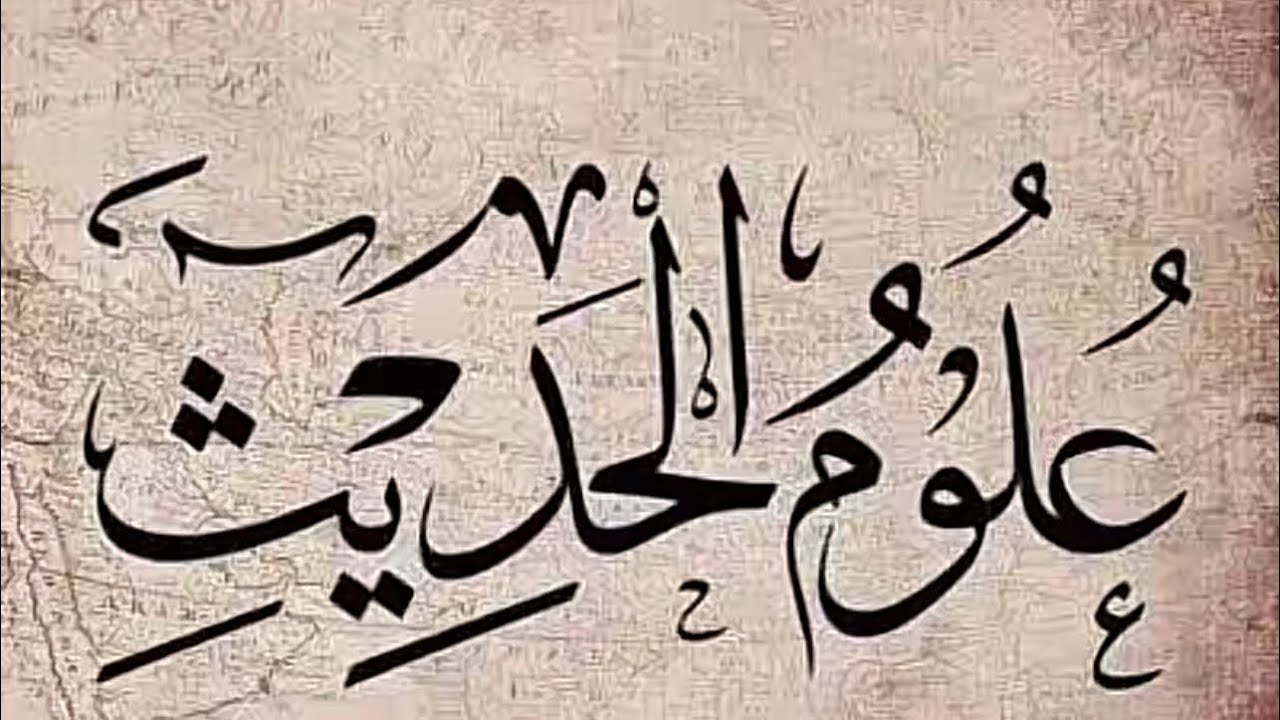 عُلُومُ الْحَدِيثِ